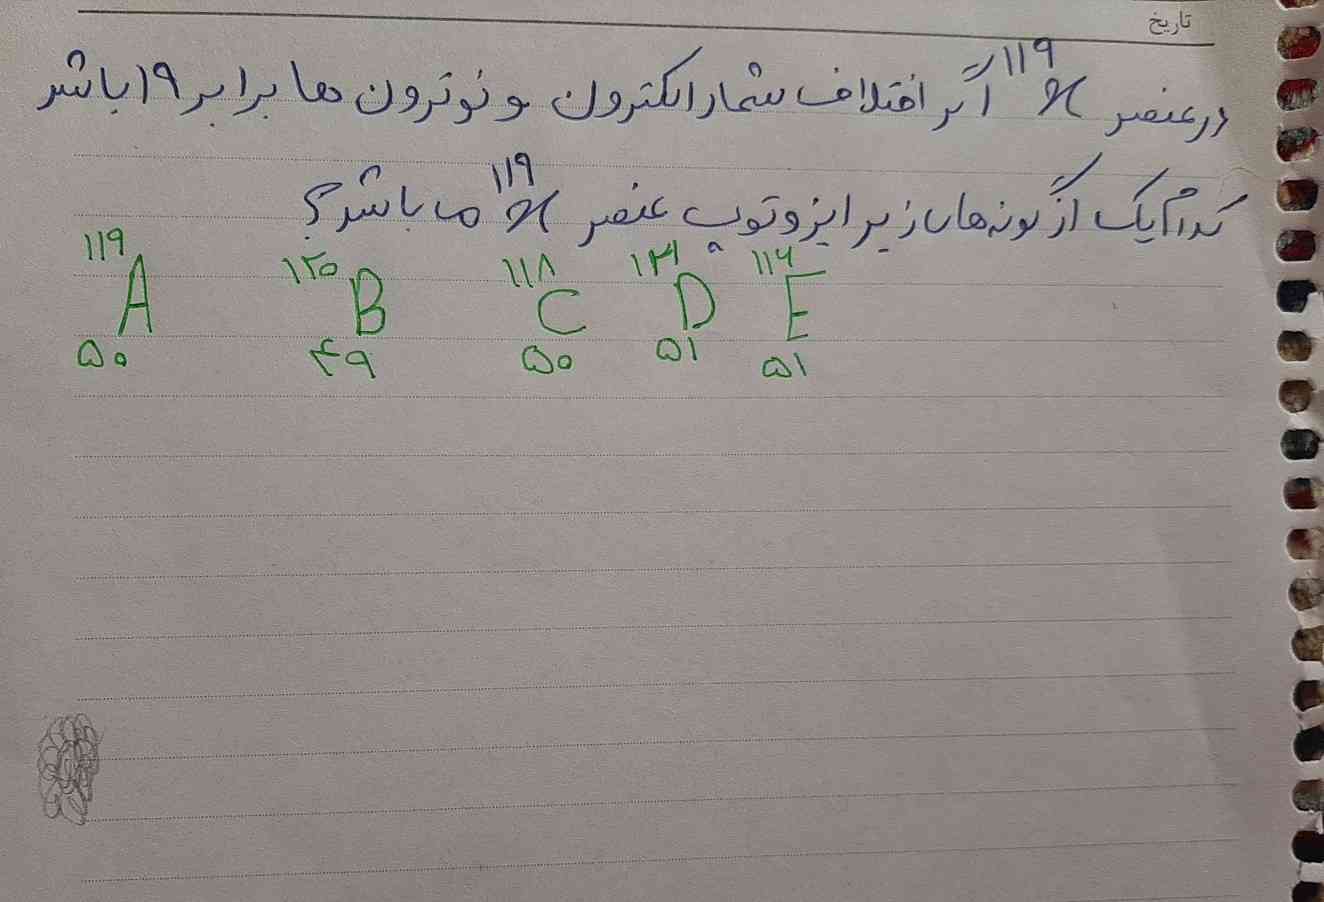 تاریخ
در عنصر ¹¹⁹X اگر اختلاف شمار الکترون و نوترون ها برابر ۱۹ باشد
کدام یک از گونه های زیر ایزوتوپ عنصر ¹¹⁹X می باشد؟
¹¹⁹A ¹²⁰B ¹¹⁸C ¹²¹D ¹¹⁶E
۵۰ ۴۹ ۵۰ ۵۱ ۵۱